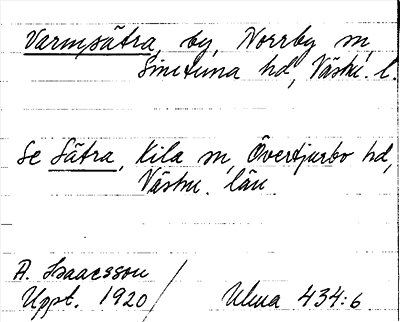 Varmsätra, by, Norrby sn,
Simtuna hd, Västm. l.
Se Sätra, Kila sn, Övertjurbo hd,
Västm. län.
A. Isaacsson
Uppt. 1920/ Ulma 434:6